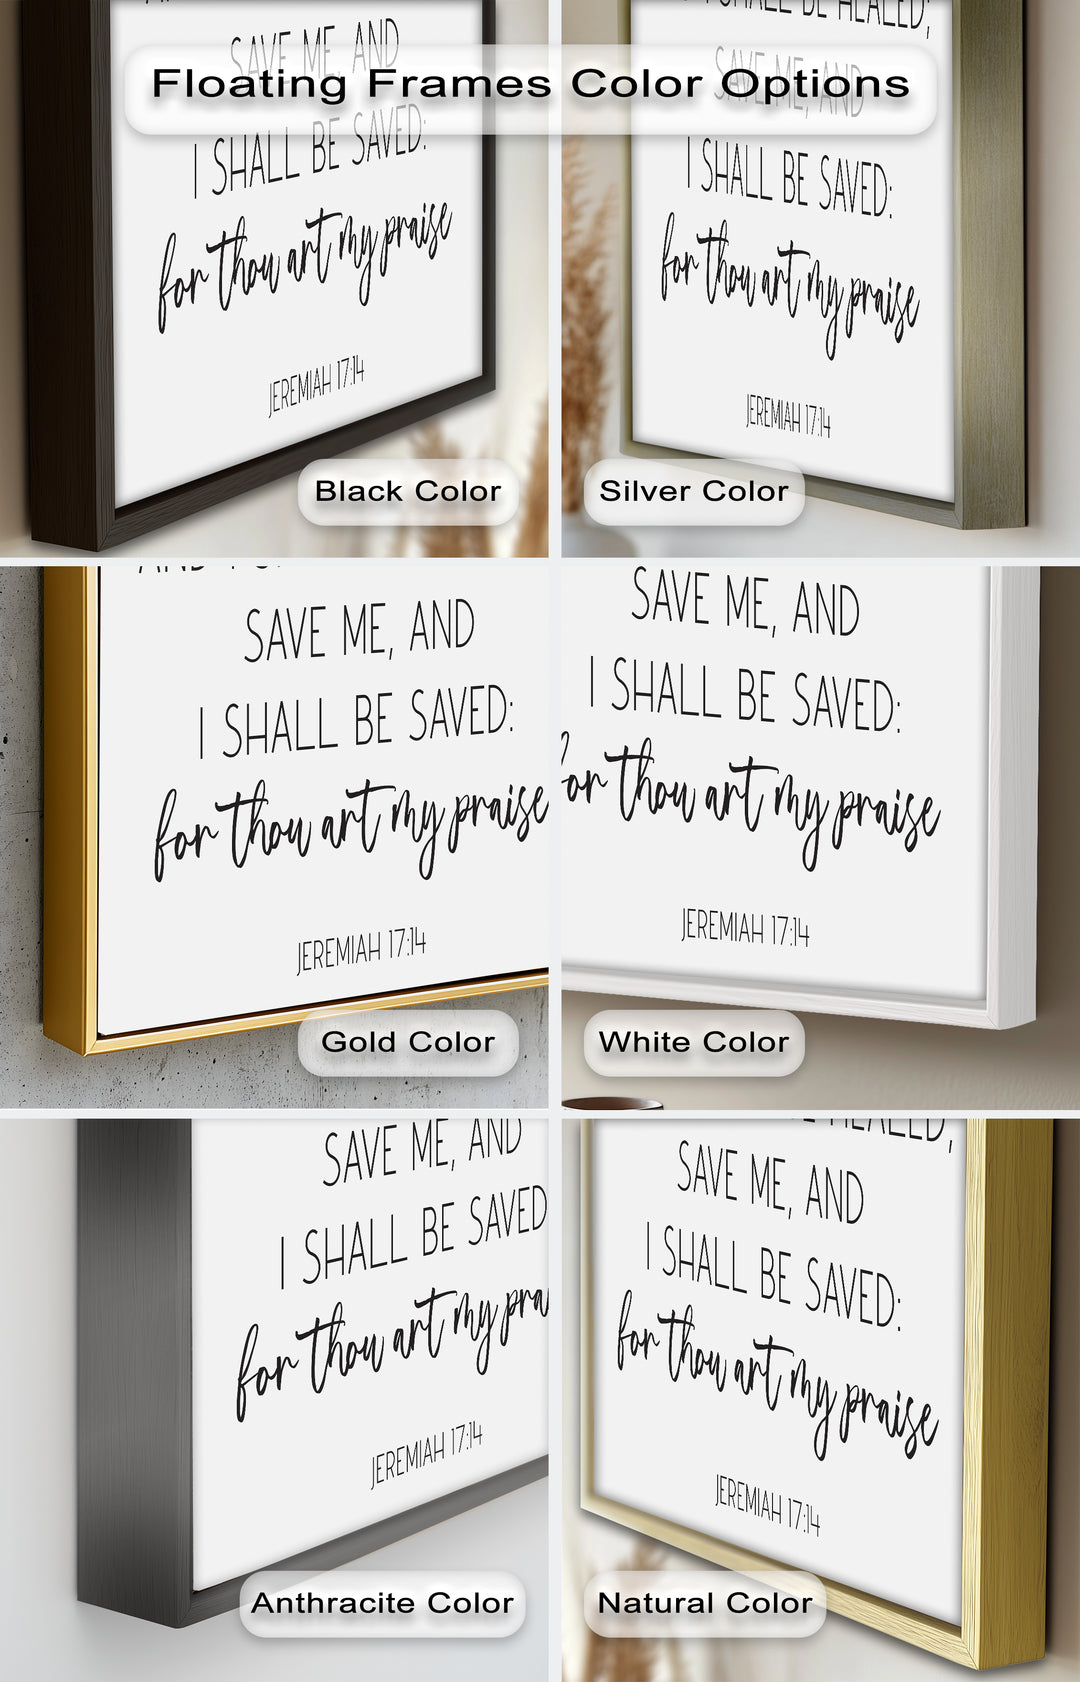 Floating Frames Color Options
SAVE ME, AND
I SHALL BE SAVED:
for thou art my praise
JEREMIAH 17:14
Black Color
I SHALL BE HEALED;
SAVE ME, AND
I SHALL BE SAVED:
for thou art my praise
JEREMIAH 17:14
Silver Color
SAVE ME, AND
I SHALL BE SAVED:
for thou art my praise
JEREMIAH 17:14
Gold Color
SAVE ME, AND
I SHALL BE SAVED:
for thou art my praise
JEREMIAH 17:14
White Color
SAVE ME, AND
I SHALL BE SAVED
for thou art my pra
JEREMIAH 17:14
Anthracite Color
HEALED,
SAVE ME, AND
I SHALL BE SAVED:
for thou art my praise
JEREMIAH 17:14
Natural Color